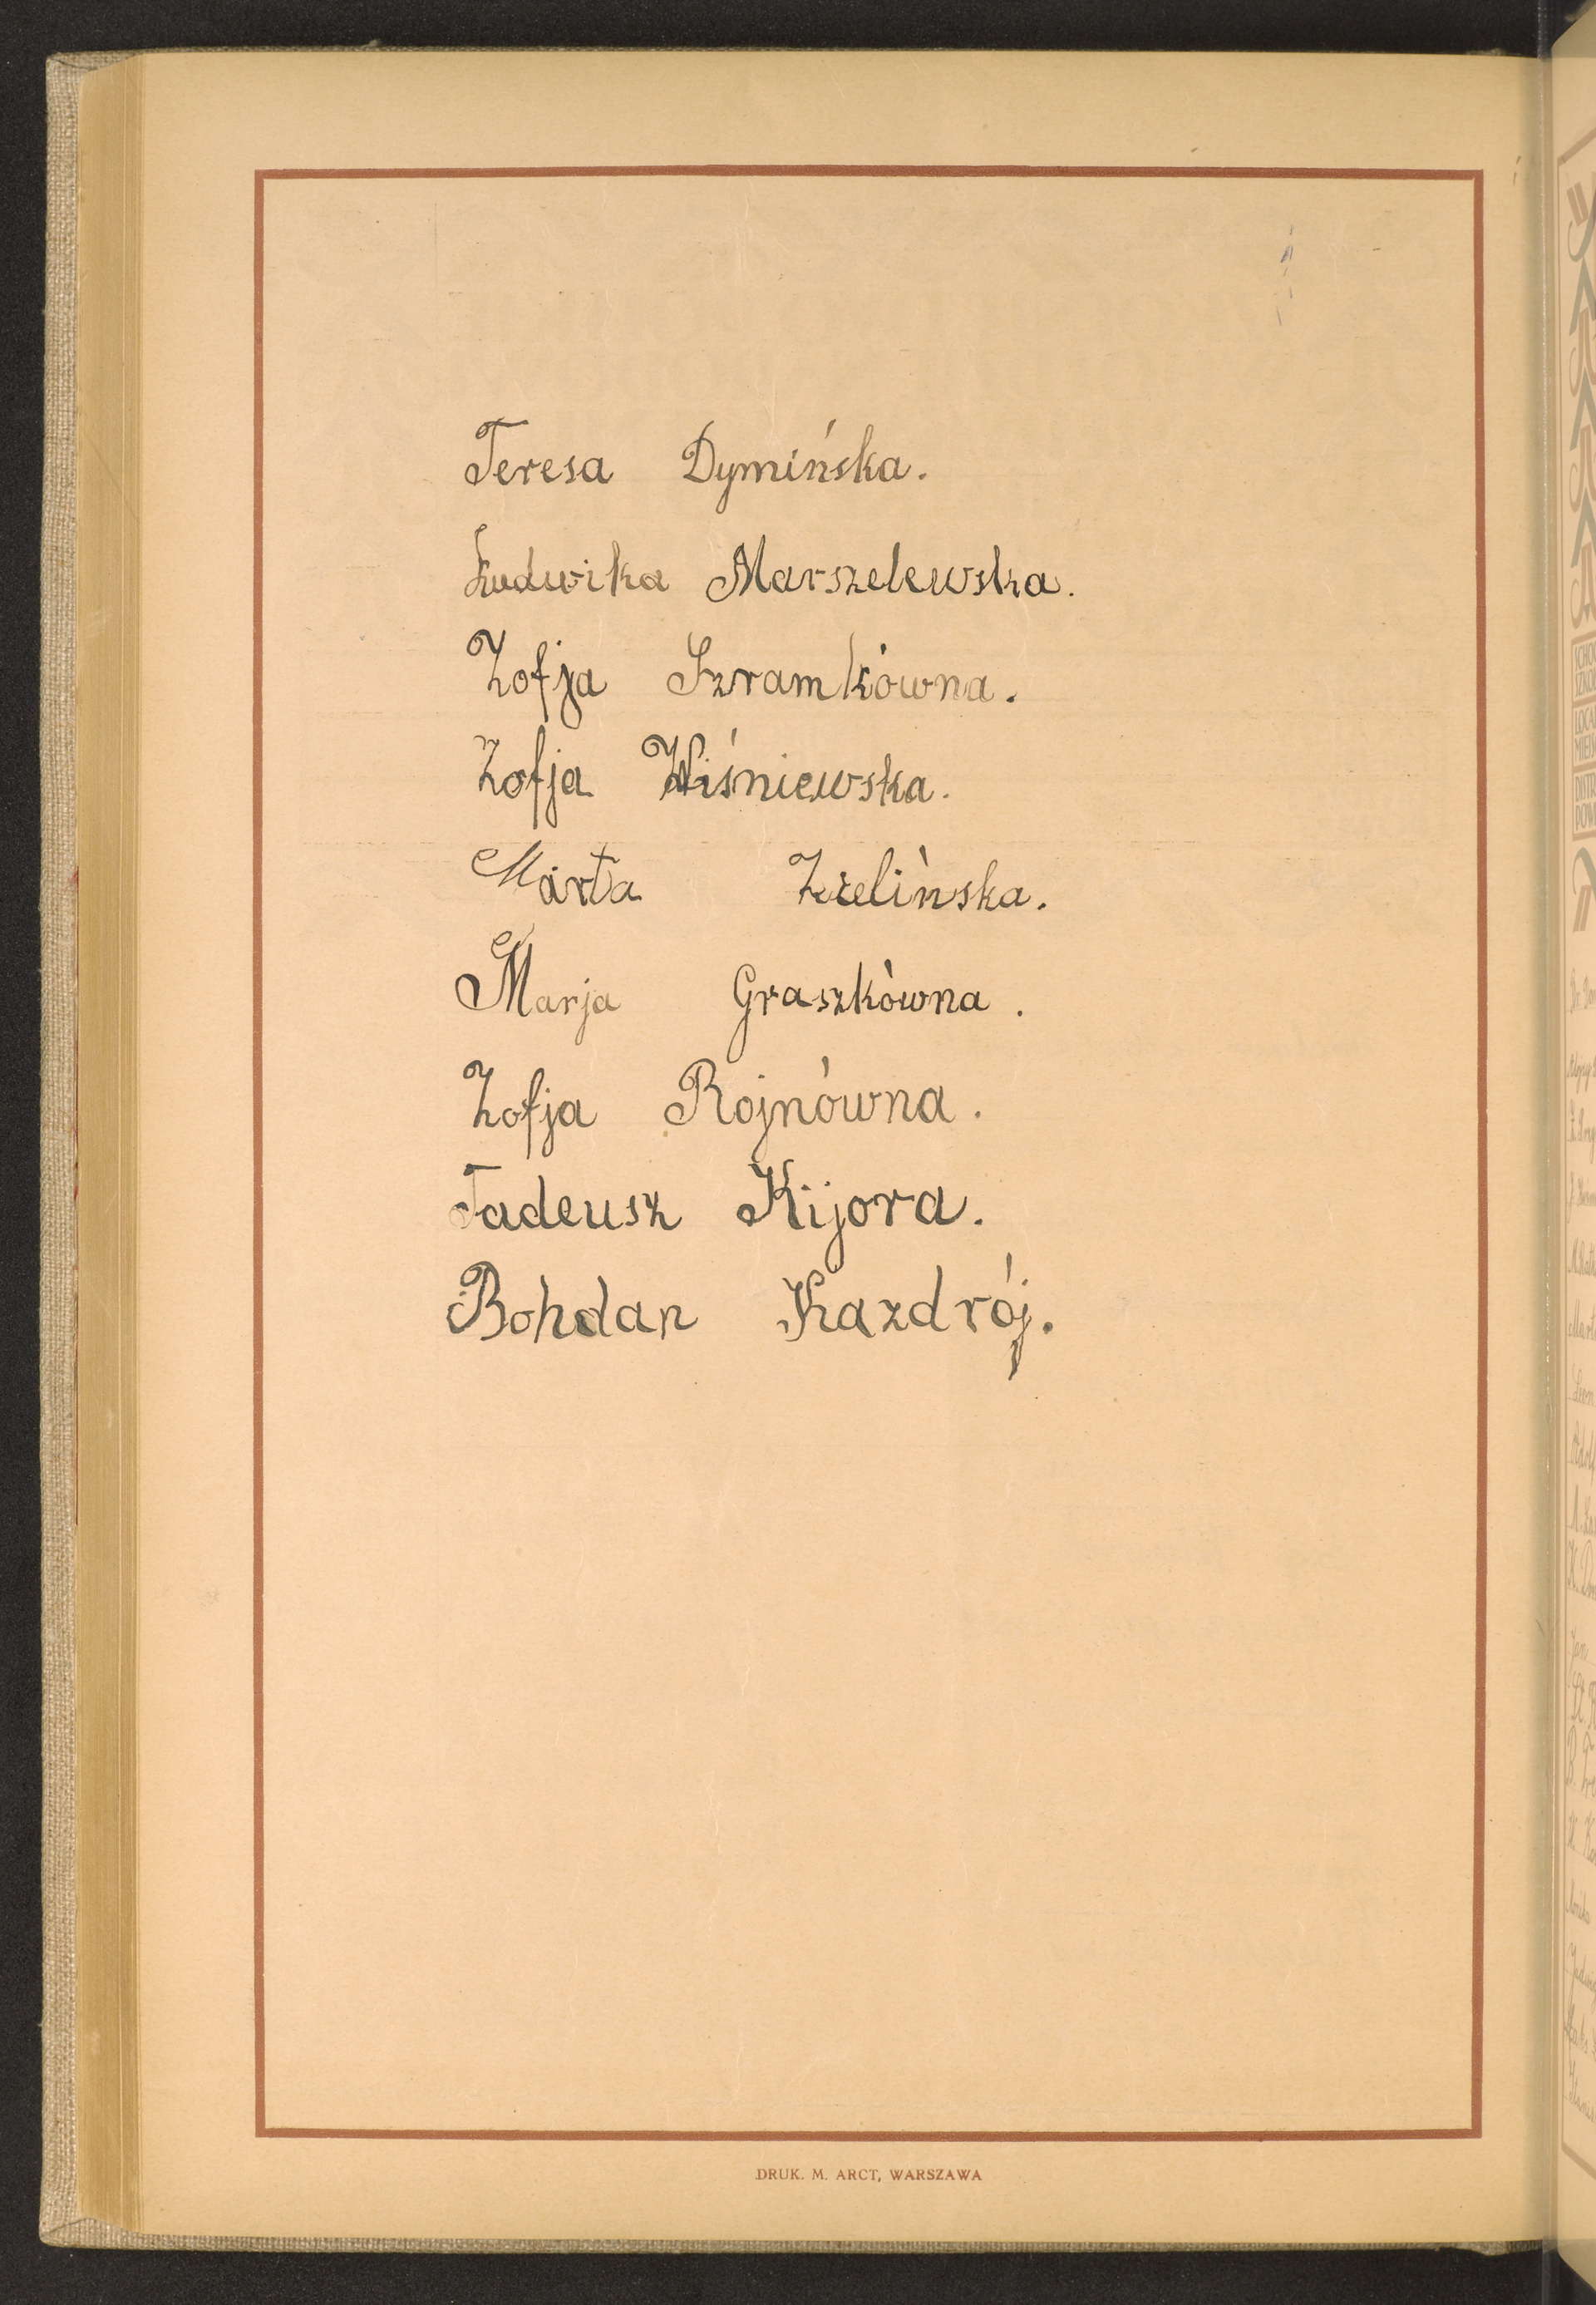 Teresa Dymińska.
Ludwika Marszelewska.
Zofja Szramkówna.
Zofja Wiśniewska.
Marta
Marja Graszkówna.
Zofja Rojnówna.
Tadeusz Kijora.
Bohdan Kazdrój.
DRUK. M. ARCT, WARSZAWA